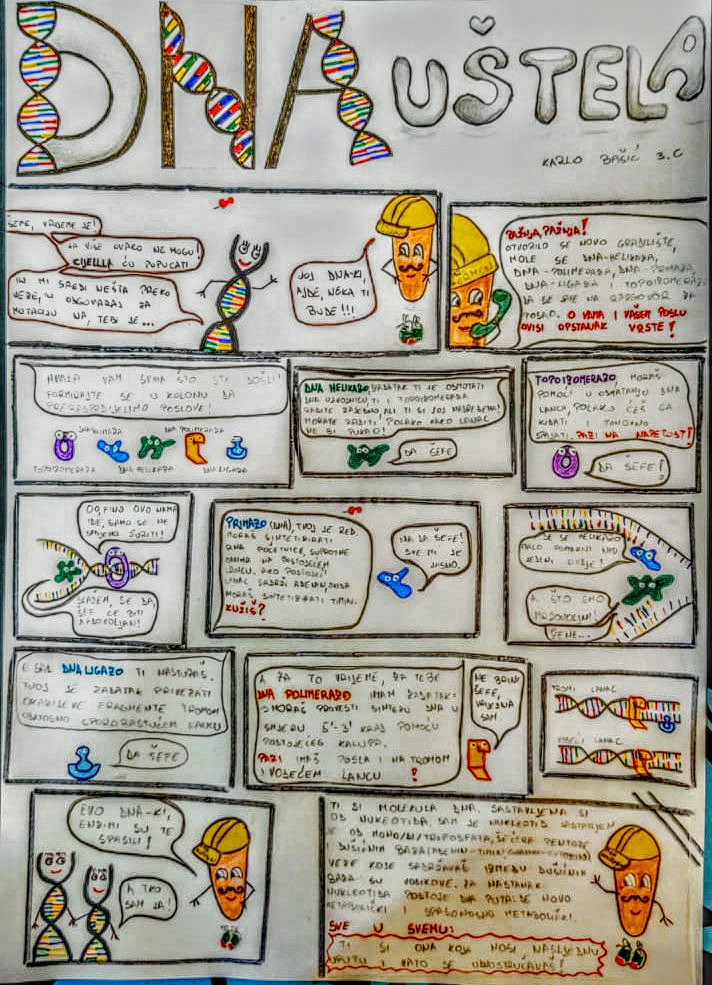 DNA UŠTELA
KARLO BAŠIĆ 3.C
ŠEFE, VRIJEME JE!
JA VIŠE OVAKO NE MOGU!
CIJELA ĆU POPUCATI
MI SREDI NEŠTA PREKO
VEZE, ODGOVARAŠ ZA
MUTACIJU NA, TEBI JE...
JOJ DNA-KI,
AJDE, NEKA TI
BUDE!!!
PAŽNJA, PAŽNJA!
OTVORILO SE NOVO GRADILIŠTE,
MOLE SE DNA-HELIKAZA,
DNA-POLIMERAZA, DNA-PRIMAZA,
DNA-LIGAZA I TOPOIZOMERAZA
DA SE JAVE NA RAZGOVOR ZA
POSAO. O VAMA I VAŠEM POSLU
OVISI OPSTANAK VRSTE!
HVALA VAM SVIMA ŠTO STE DOŠLI!
FORMIRAJTE SE U KOLONU DA
PRERASPODIJELIMO POSLOVE!
DNA POLIMERAZA
TOPOIZOMERAZA
DNA HELIKAZA
DNA LIGAZA
DNA HELIKAZO, ZADATAK TI JE ODMOTATI
DNA UZVOJNICU, TI I TOPOIZOMERAZA
RADITE ZAJEDNO, ALI TI SI JOJ NADREĐENA!
MORATE RADITI POLAKO KAKO LANAC
NE BI PUKAO!
DA ŠEFE
TOPOIZOMERAZO MORAŠ
POMOĆI U ODMATANJU DNA
LANCA, POLAKO ĆEŠ GA
KIDATI PONOVNO
SPAJATI. PAZI NA NAPETOST!
DA ŠEFE!
OO, FINO OVO NAMA
IDE, SAMO SE NE
SMIJEMO ŽURITI!
SLAŽEM SE JA,
ŠEF ĆE BITI
ZADOVOLJAN!
PRIMAZO (DNA), TVOJ JE RED,
MORAŠ SINTETIZIRATI
RNA POČETNICE, SUPROTNE
ONIMA NA POSTOJEĆEM
LANCU. AKO POSTOJEĆI
LANAC SADRŽI ADENIN, ONDA
MORAŠ SINTETIZIRATI TIMIN.
KUŽIŠ?
DA ŠEFE!
SVE MI JE
JASNO.
HELIKAZO
MALO POMAKNI
A ŠTO SMO
MRZOVOLJNI!
ŽENE...
E SAD DNA LIGAZO TI NASTUPAŠ.
TVOJ JE ZADATAK PRIVEZATI
OKAZAKIJEVE FRAGMENTE TROMOM
ODNOSNO SPORORASTUĆEM LANCU
DA ŠEFE
A ZA TO VRIJEME, ZA TEBE
DNA POLIMERAZO IMAM ZADATAK:
MORAŠ PROVESTI SINTEZU DNA U
SMJERU 5'-3' KRAJ POMOĆU
POSTOJEĆEG KALUPA.
PAZI IMAŠ POSLA I NA TROMOM
I VODEĆEM LANCU!
NE BRINI
ŠEFE,
VRIJEDNA
SAM.
TROMI LANAC
VODEĆI LANAC
EVO DNA-KI,
ENZIMI SU TE
SPASILI!
A TKO
SAM JA!
TI SI MOLEKULA DNA. SASTAVLJENA SI
OD NUKLEOTIDA, SAM JE NUKLEOTID SASTAVLJEN
OD MONO/DI/TRIFOSFATA, ŠEĆERA PENTOZE
I DUŠIČNIH BAZA (ADENIN-TIMIN, GUANIN-CITOZIN)
VEZE KOJE SADRŽAVAŠ IZMEĐU DUŠIČNIH
BAZA SU VODIKOVE. ZA NASTANAK
NUKLEOTIDA POSTOJE DVA PUTA: DE NOVO
METABOLIČKI I SPASONOSNO METABOLIČKI.
SVE U SVEMU:
TI SI ONA KOJA NOSI NASLJEDNU
UPUTU I ZATO SE UDVOSTRUČAVAŠ!